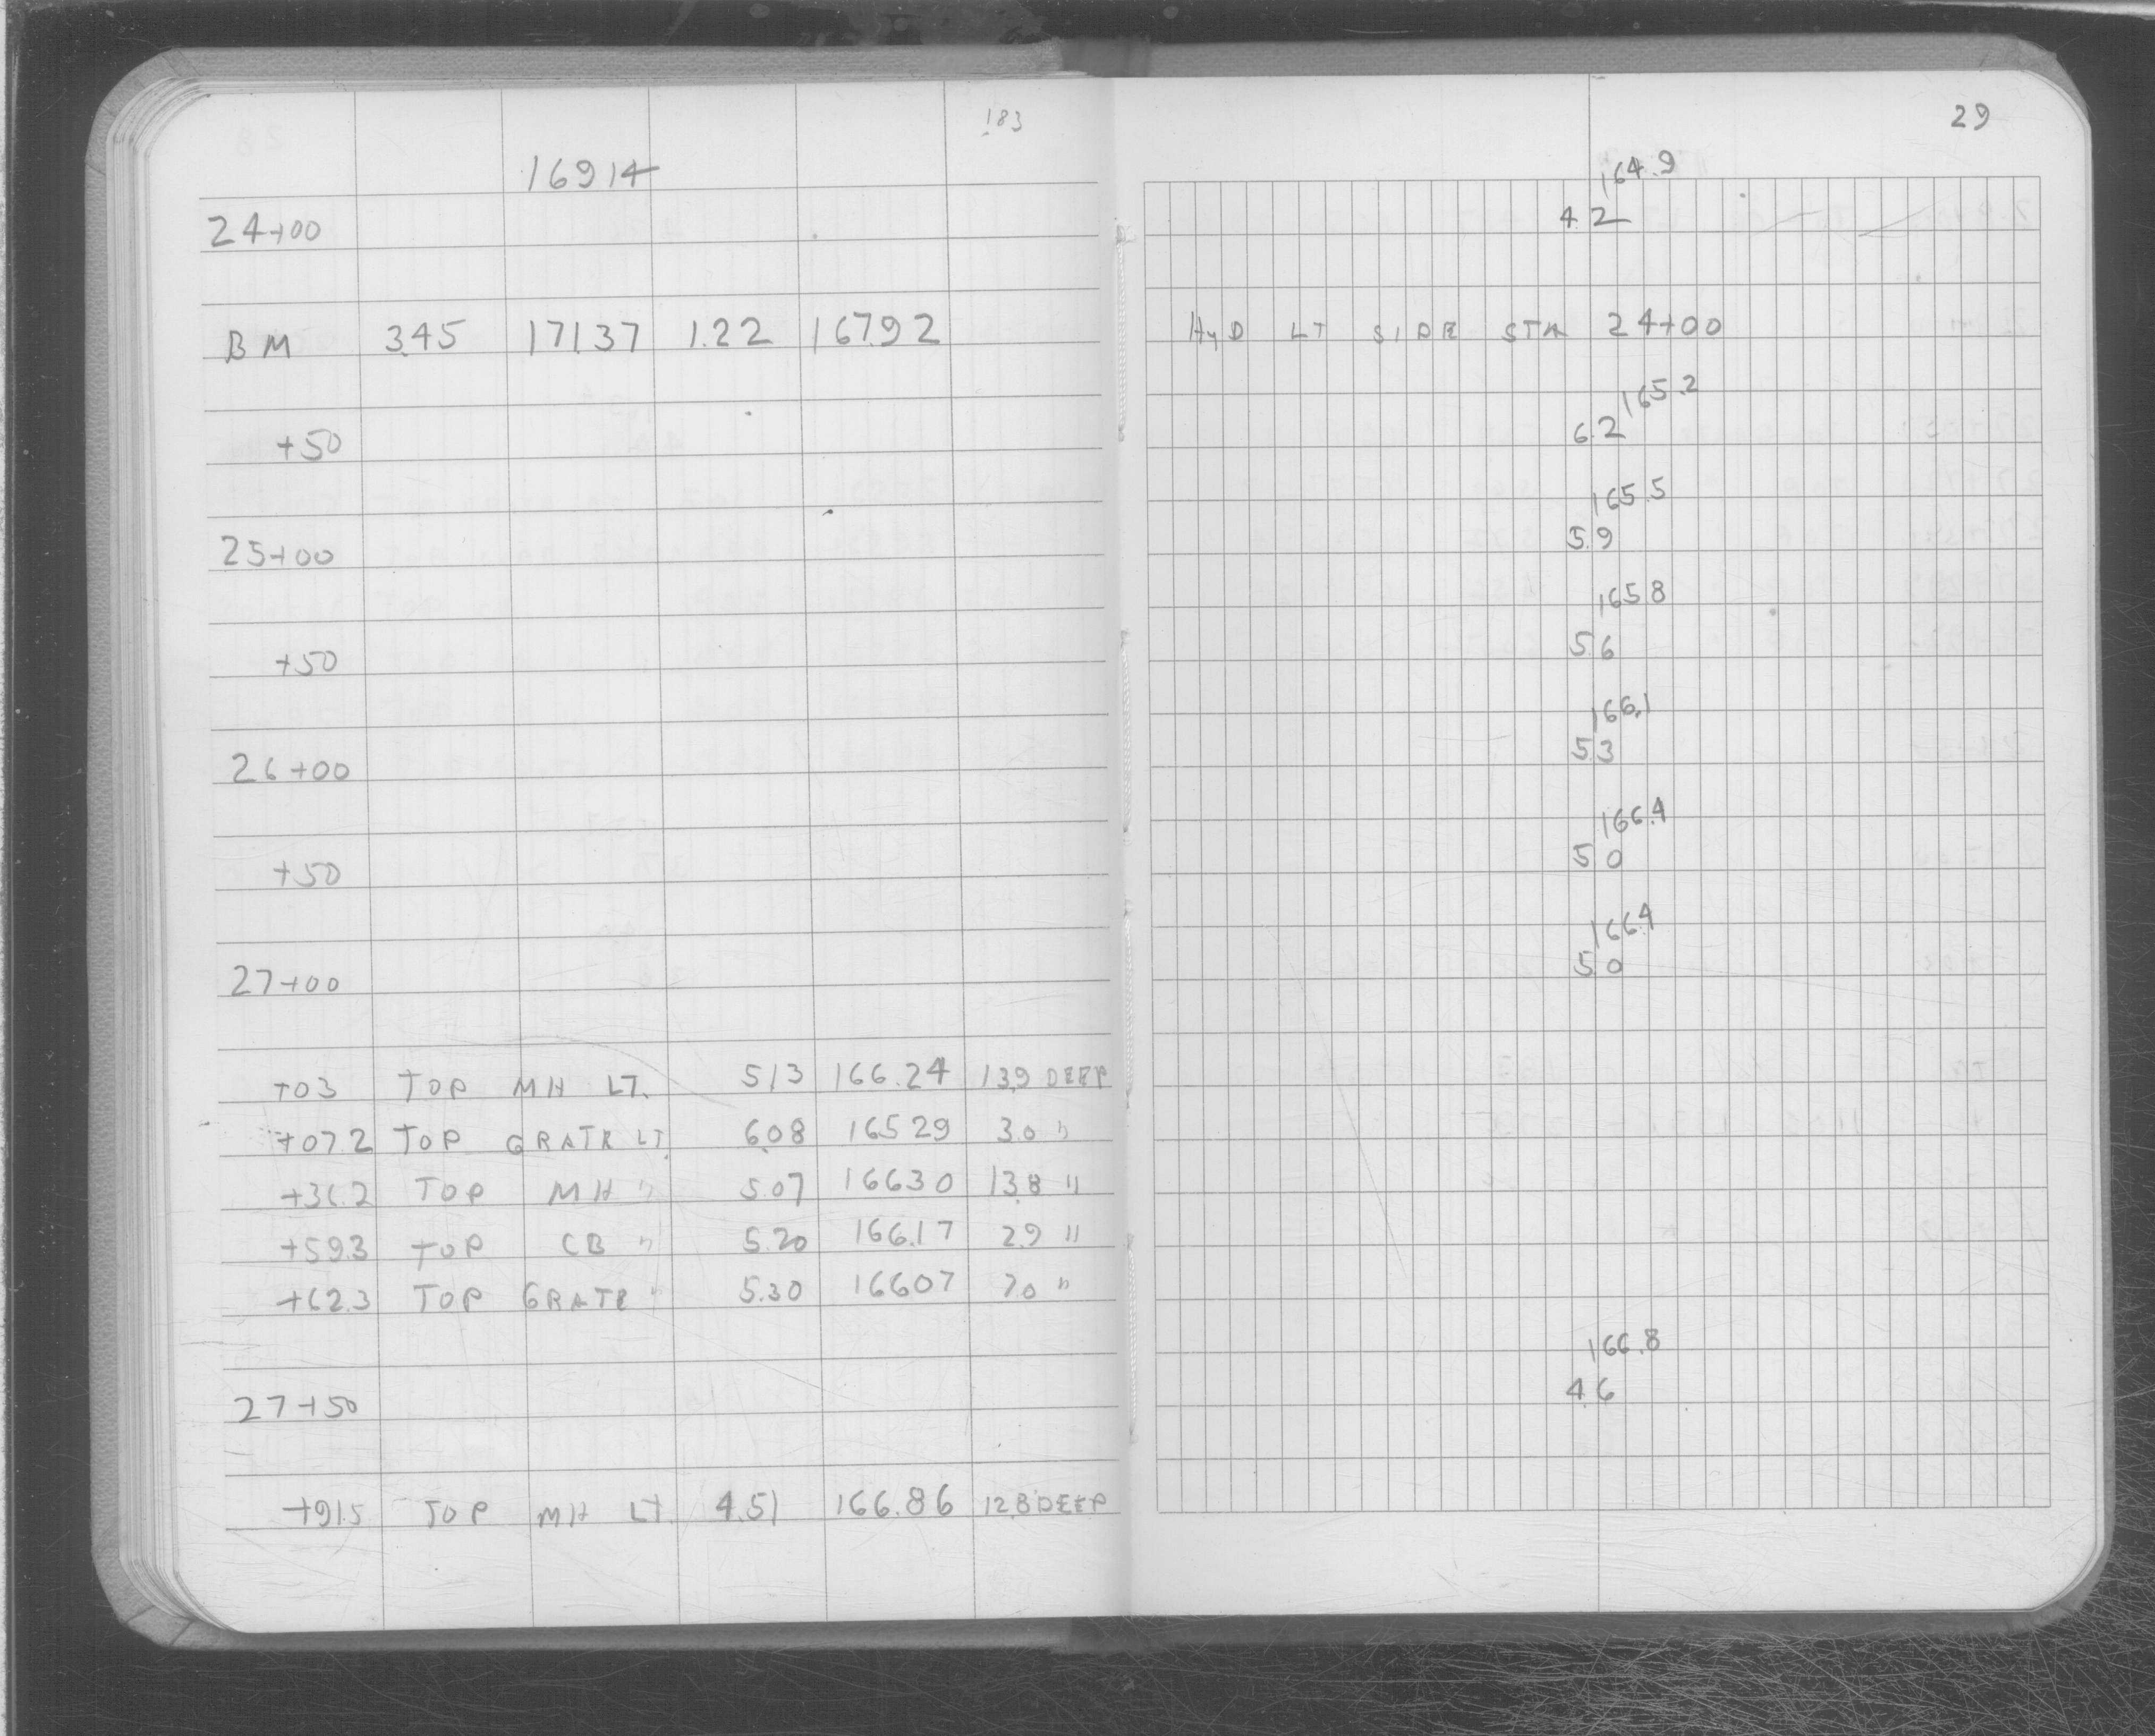 183
16914
24+00
BM 3.45 171.37 1.22 167.92
+50
25+00
+50
26+00
+50
27+00
+03 TOP MH LT. 5.13 166.24 13.9 DEEP
+07.2 TOP GRATE LT. 6.08 165.29 3.0 "
+36.2 TOP MH " 5.07 166.30 13.8 "
+59.3 TOP CB " 5.20 166.17 2.9 "
+62.3 TOP GRATE " 5.30 166.07 "
27+50
+91.5 TOP MH LT. 4.51 166.86 12.8 DEEP
29
164.9
4.2
HYD LT SIDE STA 24+00
165.2
6.2
165.5
5.9
165.8
5.6
166.1
5.3
166.4
5.0
166.4
5.0
166.8
4.6